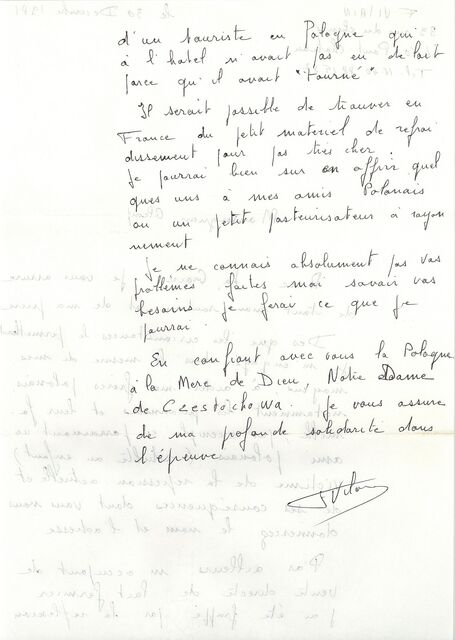 d'un touriste en Pologne qui
à l'hotel n'avait pas eu de lait
parce qu'il avait "tourné"
Il serait possible de trouver en
France du petit materiel de refroi
dissement pour pas très cher.
Je pourrai bien sur en offrir quel
ques uns à mes amis Polonais
ou un petit pasteurisateur à rayon
nement
Je ne connais absolument pas vos
problèmes faites moi savoir vos
besoins je ferai ce que je
pourrai
En confiant avec vous la Pologne
à la Mere de Dieu, Notre Dame
de Czestochowa. Je vous assure
de ma profonde solidarité dans
l'épreuve